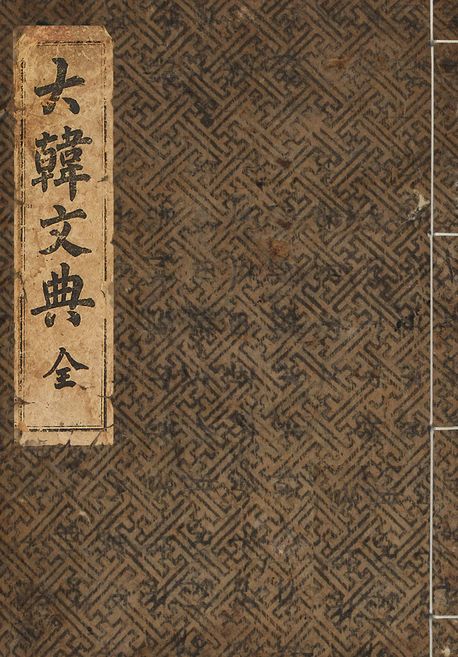 大韓文典 全